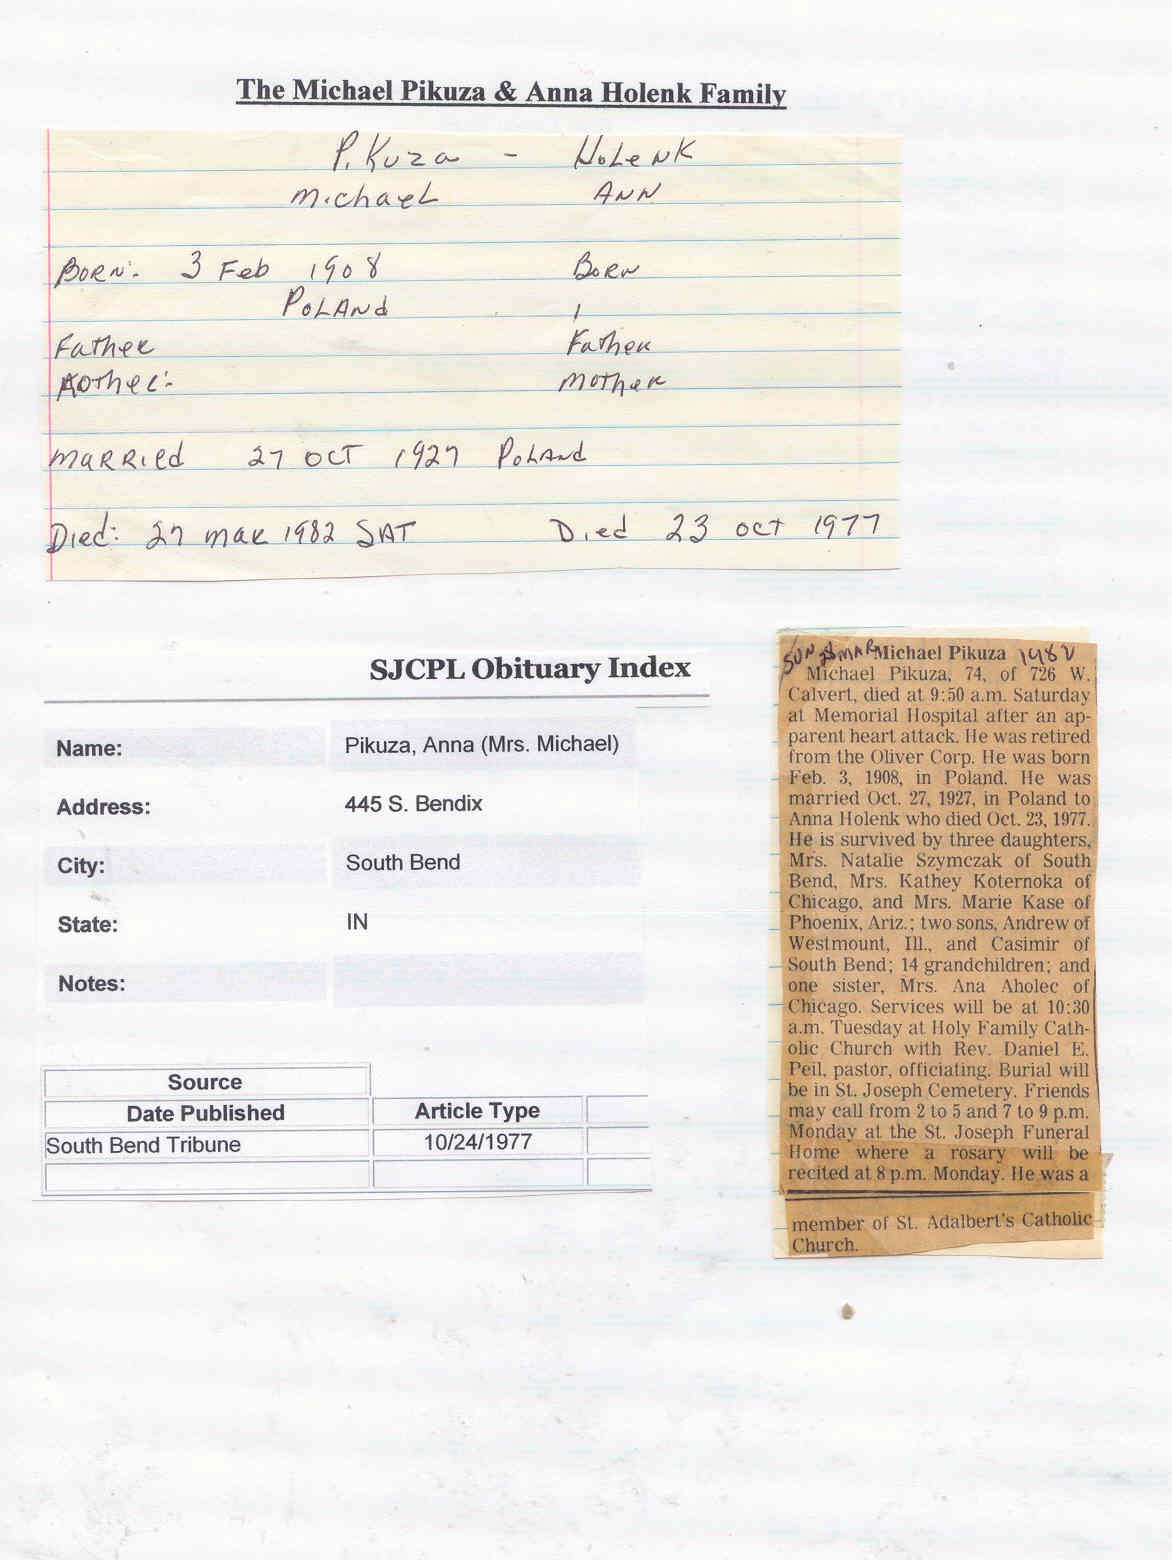 The Michael Pikuza & Anna Holenk Family
PiKuza - HoLeNK
MichaeL ANN
BORN:- 3 Feb 1908 BORN
PoLANd
Father Father
Mother:- Mother
MARRied 27 OCT 1927 PoLANd
Died: 27 MAR 1982 SAT Died 23 OCT 1977
SJCPL Obituary Index
Name: Pikuza, Anna (Mrs. Michael)
Address: 445 S. Bendix
City: South Bend
State: IN
Notes:
Source
Date Published Article Type
South Bend Tribune 10/24/1977
SUN 28 MAR Michael Pikuza 1982
Michael Pikuza, 74, of 726 W.
Calvert, died at 9:50 a.m. Saturday
at Memorial Hospital after an ap-
parent heart attack. He was retired
from the Oliver Corp. He was born
Feb. 3, 1908, in Poland. He was
married Oct. 27, 1927, in Poland to
Anna Holenk who died Oct. 23, 1977.
He is survived by three daughters,
Mrs. Natalie Szymczak of South
Bend, Mrs. Kathey Koternoka of
Chicago, and Mrs. Marie Kase of
Phoenix, Ariz.; two sons, Andrew of
Westmount, Ill., and Casimir of
South Bend; 14 grandchildren; and
one sister, Mrs. Ana Aholec of
Chicago. Services will be at 10:30
a.m. Tuesday at Holy Family Cath-
olic Church with Rev. Daniel E.
Peil, pastor, officiating. Burial will
be in St. Joseph Cemetery. Friends
may call from 2 to 5 and 7 to 9 p.m.
Monday at the St. Joseph Funeral
Home where a rosary will be
recited at 8 p.m. Monday. He was a
member of St. Adalbert's Catholic
Church.